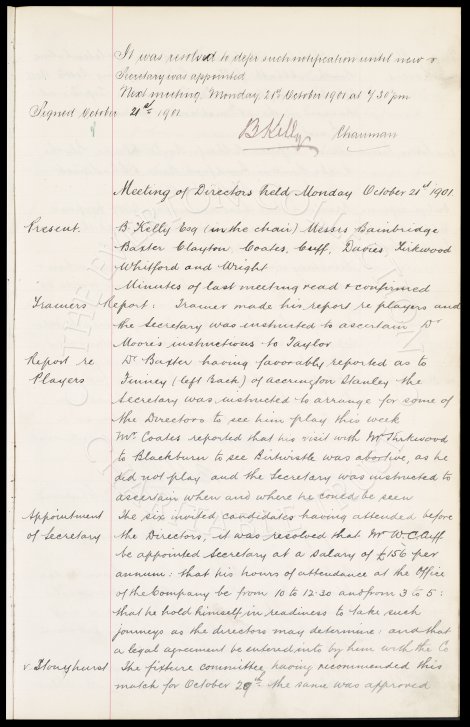 It was resolved to defer such notification until new
Secretary was appointed
Next meeting Monday, 21st October 1901 at 7/30 pm
Signed October 21st 1901
B Kelly Chairman
Meeting of Directors held Monday October 21st 1901
Present. B Kelly Esq (in the chair) Messrs Bainbridge
Baxter Clayton, Coates, Cuff, Davies, Kirkwood
Whitford and Wright
Minutes of last meeting read & confirmed
Trainers Report: Trainer made his report re players and
the Secretary was instructed to ascertain Dr
Moore's instructions to Taylor
Report re Dr Baxter having favorably reported as to
Players Finney (left back) of Accrington Stanley the
Secretary was instructed to arrange for some of
the Directors to see him play this week
Mr Coates reported that his visit with Mr Kirkwood
to Blackburn to see Birtwistle was abortive, as he
did not play and the Secretary was instructed to
ascertain when and where he could be seen
Appointment The six invited candidates having attended before
of Secretary the Directors, it was resolved that Mr W.C. Cuff
be appointed Secretary at a salary of £156 per
annum: that his hours of attendance at the Office
of the Company be from 10 to 12.30 and from 3 to 5:
that he hold himself in readiness to take such
journeys as the directors may determine: and that
a legal agreement be entered into by him with the Co
v Stonyhurst The fixture committee having recommended this
match for October 29th the same was approved